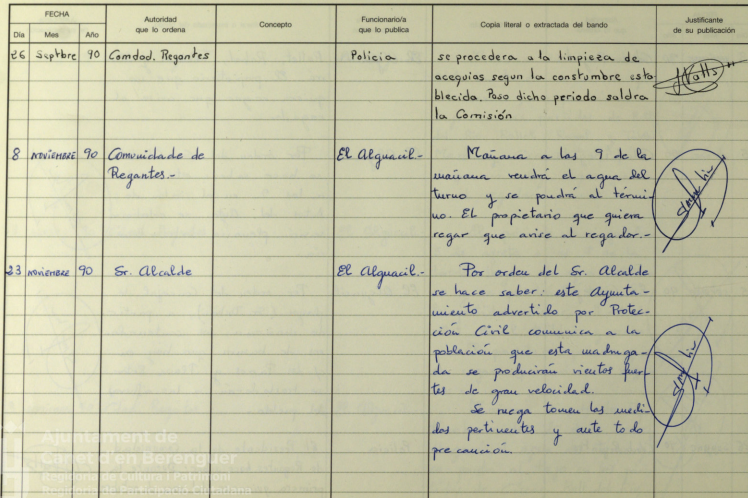 FECHA
Día Mes Año
Autoridad
que lo ordena
Concepto
Funcionario/a
que lo publica
Copia literal o extractada del bando
Justificante
de su publicación
26 Septbre 90 Comdad. Regantes Policia se procedera a la limpieza de
acequias segun la constumbre esta
blecida. Paso dicho periodo saldra
la Comisión
8 NOVIEMBRE 90 Comunidade de El Alguacil.- Mañana a las 9 de la
Regantes.- mañana vendrá el agua del
turno y se pondrá al térmi-
no. El propietario que quiera
regar que avise al regador.-
23 NOVIEMBRE 90 Sr. Alcalde El Alguacil.- Por orden del Sr. Alcalde
se hace saber: este Ayunta-
miento advertido por Protec-
ción Civil comunica a la
población que esta madruga-
da se producirán vientos fuer-
tes de gran velocidad.
Se ruega tomen las medi-
das pertinentes y ante todo
precaución.
Ajuntament de
Canet d'en Berenguer
Regidoria de Cultura i Patrimoni
Regidoria de Participació Ciutadana